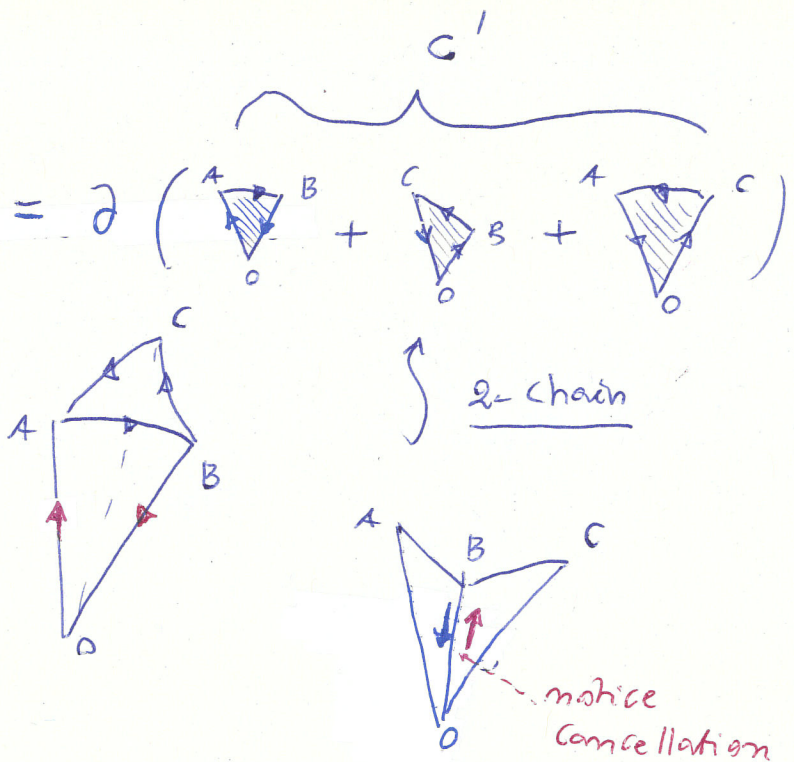 C'
= ∂ ( A B O + C B O + A C O )
C
A
B
O
2-Chain
A
B
C
O
notice
Cancellation